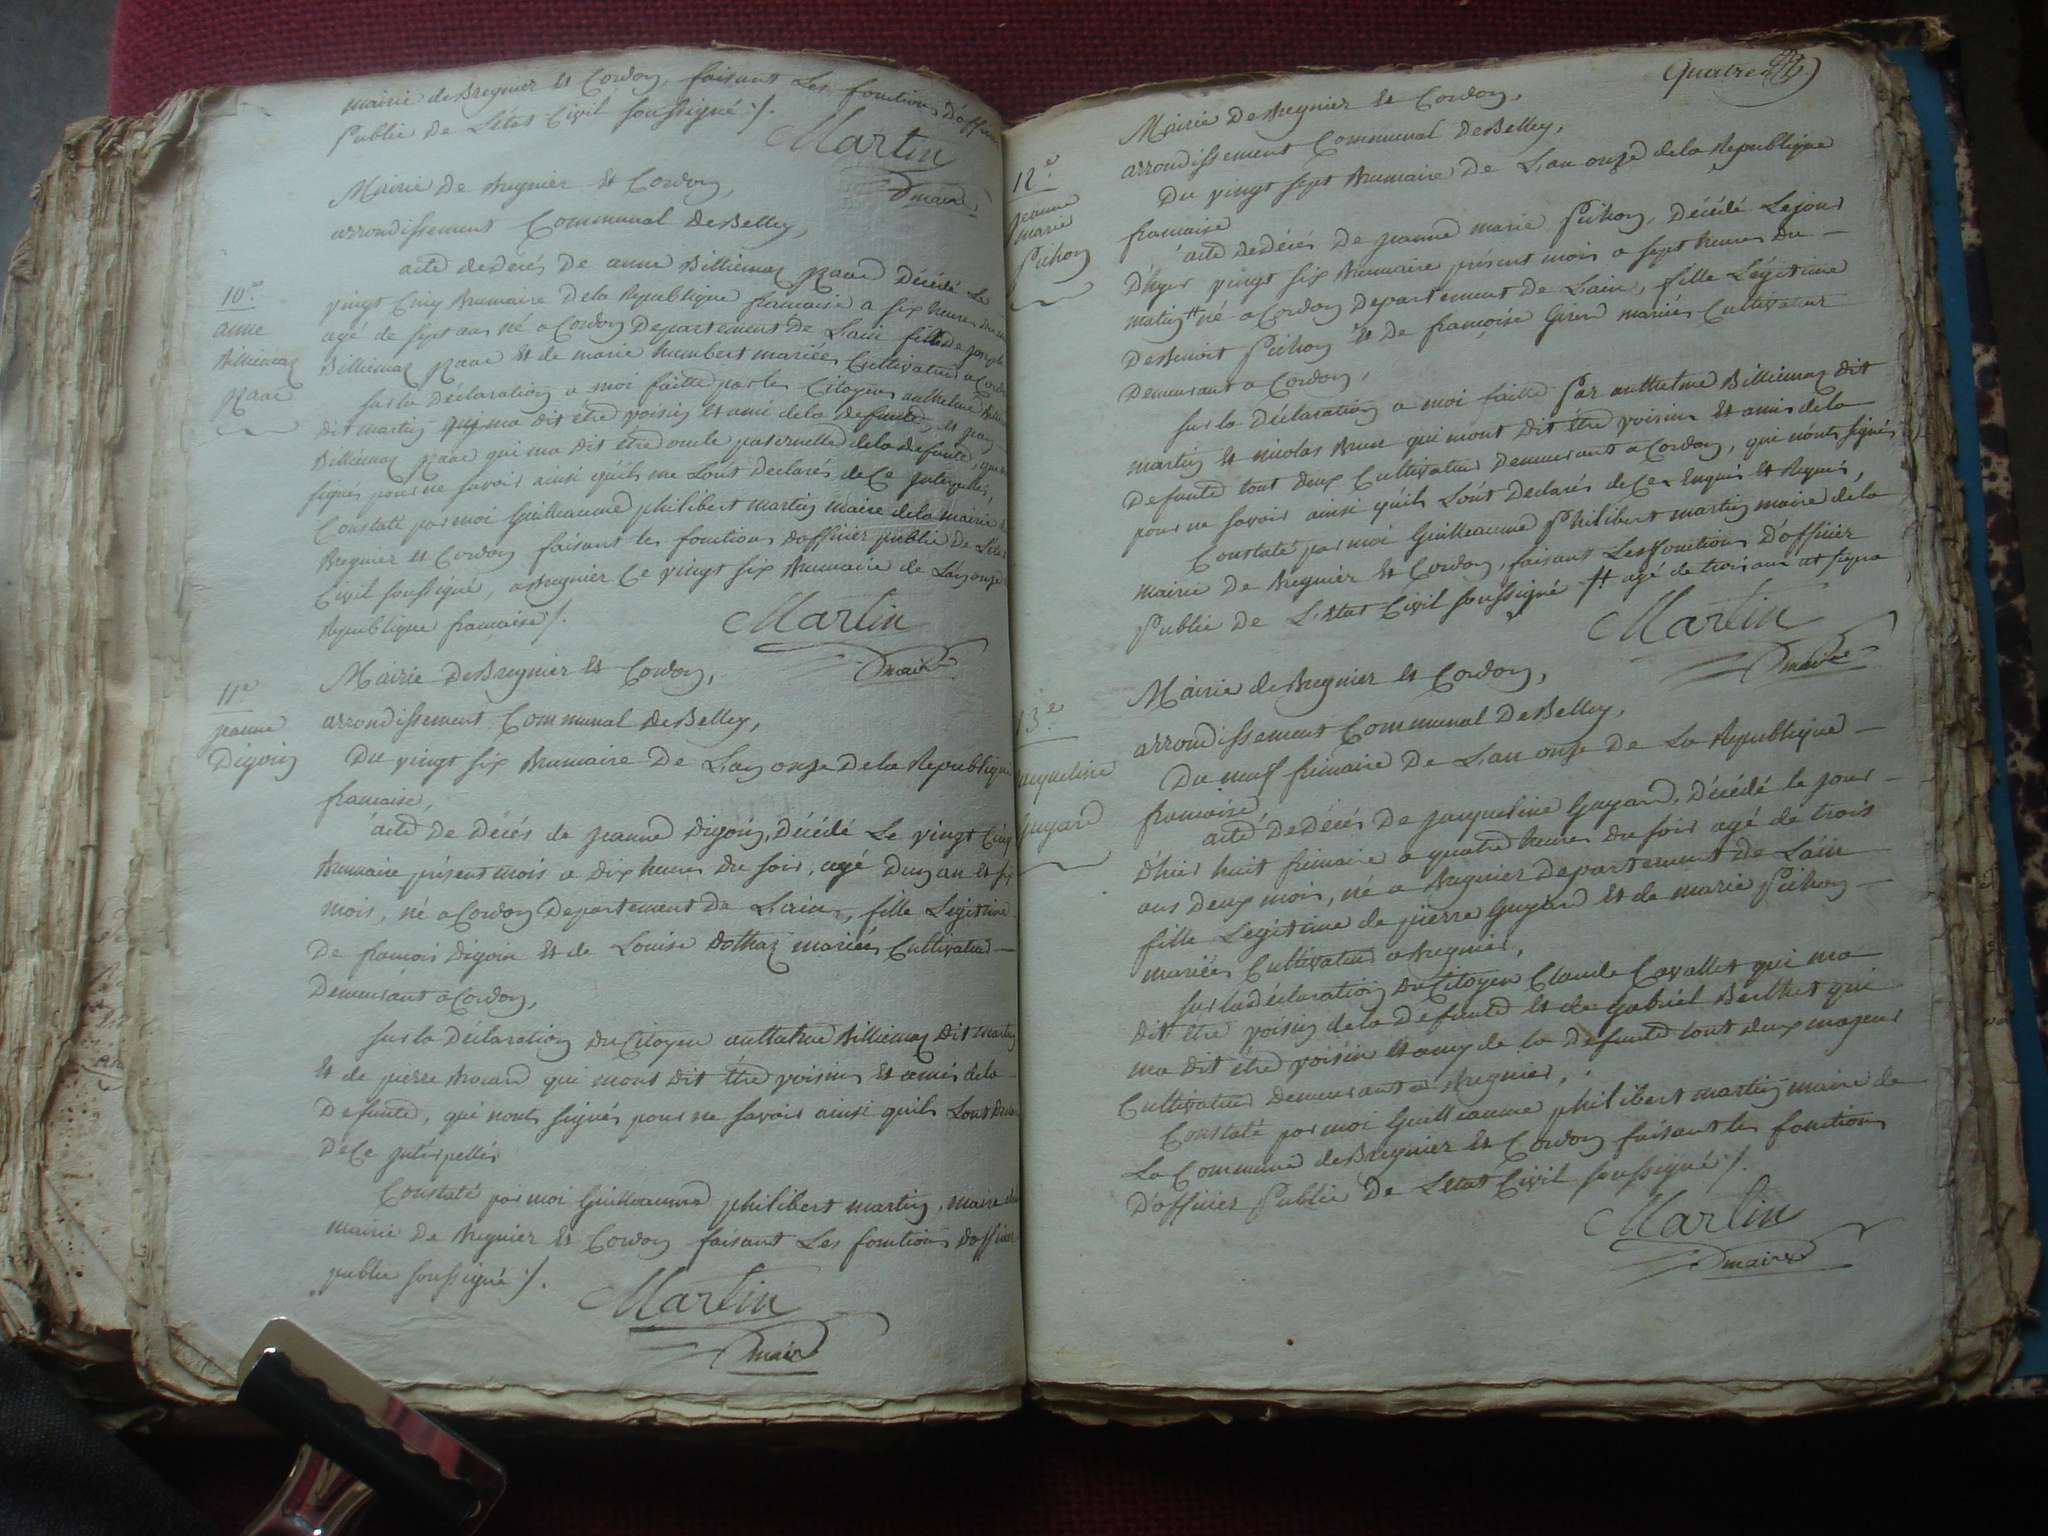 mairie de Bregnier et Cordon, faisant Les fonctions d'officier
Public De L'état Civil soussigné ./.
Martin
maire
Mairie De Bregnier et Cordon,
arrondissement Communal De Belley,
10.e
anne
Billiemaz
acte de decés De anne Billiemaz décédé Le
vingt Cinq Brumaire De la Republique francaise a six heures
agé de sept ans né a Cordon Departement De L'ain fille De joseph
Billiemaz et de marie humbert mariées Cultivateur a Cordon
sur la Déclaration a moi faitte par les Citoyens anthelme
dit martin qui ma dit être voisin et ami de la defunte, et jean
Billiemaz qui ma dit être oncle paternelle de la defunte,
signés pour ne savoir ainsi quils me Lont Declarés de Ce interpellés,
Constaté par moi Guilleaume philibert martin maire de la mairie de
Bregnier et Cordon faisant les fonctions d'officier public De L'état
Civil soussigné, a Bregnier Ce vingt six Brumaire de L'an onze
Republique francaise ./.
Martin
maire
11.e
jeanne
Digoin
Mairie De Bregnier et Cordon,
arrondissement Communal De Belley,
Du vingt six Brumaire De L'an onze De la Republique
francaise,
acte De Décés de jeanne Digoin, Décédé Le vingt Cinq
Brumaire présent mois a dix heures Du soir, agé Dun an et six
mois, né a Cordon Departement De L'ain, fille Legitime
De francois Digoin et de Louise mariées Cultivateur
Demeurant a Cordon,
sur la Déclaration Du Citoyen anthelme Billiemaz Dit martin
et de pierre qui mont dit être voisins et amis de la
Defunte, qui nonts signés pour ne savoir ainsi quils Lont Declarés
De Ce intérpellés
Constaté par moi Guilleaume philibert martin, maire de la
mairie De Bregnier et Cordon faisant Les fonctions D'officier
public soussigné ./.
Martin
maire
Quatre
Mairie De Bregnier et Cordon,
arrondissement Communal De Belley,
Du vingt sept Brumaire De L'an onze de la Republique
francaise
12.e
jeanne
marie
Pichon
acte de decés De jeanne marie Pichon, Décédé Le jour
D'hyer vingt six Brumaire présent mois a sept heures Du
matin # né a Cordon Departement De L'ain, fille Légitime
De Benoit Pichon et De françoise Girin mariées Cultivateur
Demeurant a Cordon,
sur la Déclaration a moi faitte Par anthelme Billiemaz dit
martin et nicolas Brun qui mont dit être voisins et amis de la
Defunte tout deux Cultivateurs Demeurant a Cordon, qui nonts signés
pour ne savoir ainsi quils Lont Declarés de Ce Enquis et Requis,
Constaté par moi Guilleaume Philibert martin maire de la
mairie De Bregnier et Cordon, faisant Les fonctions D'officier
Public De L'état Civil soussigné # agé de trois ans
Martin
maire
Mairie de Bregnier et Cordon,
13.e
jacqueline
Guyard
arrondissement Communal De Belley,
Du neuf frimaire De L'an onze De La Republique
francaise
acte De Décés De jacqueline Guyard, Décédé le jour
d'hier huit frimaire a quatre heures Du soir agé de trois
ans Deux mois, né a Bregnier Departement De L'ain
fille Légitime de pierre Guyard et de marie Pichon
mariées Cultivateur a Bregnier,
sur la déclaration Du Citoyen Claude Cavallet qui ma
dit être voisin de la Defunte et de Gabriel Berthet qui
ma dit être voisin et amy de la Defunte tout deux majeur
Cultivateur Demeurant a Bregnier,
Constaté par moi Guilleaume philibert martin maire de
La Commune de Bregnier et Cordon faisant les fonctions
D'officier Public De L'état Civil soussigné ./.
Martin
maire